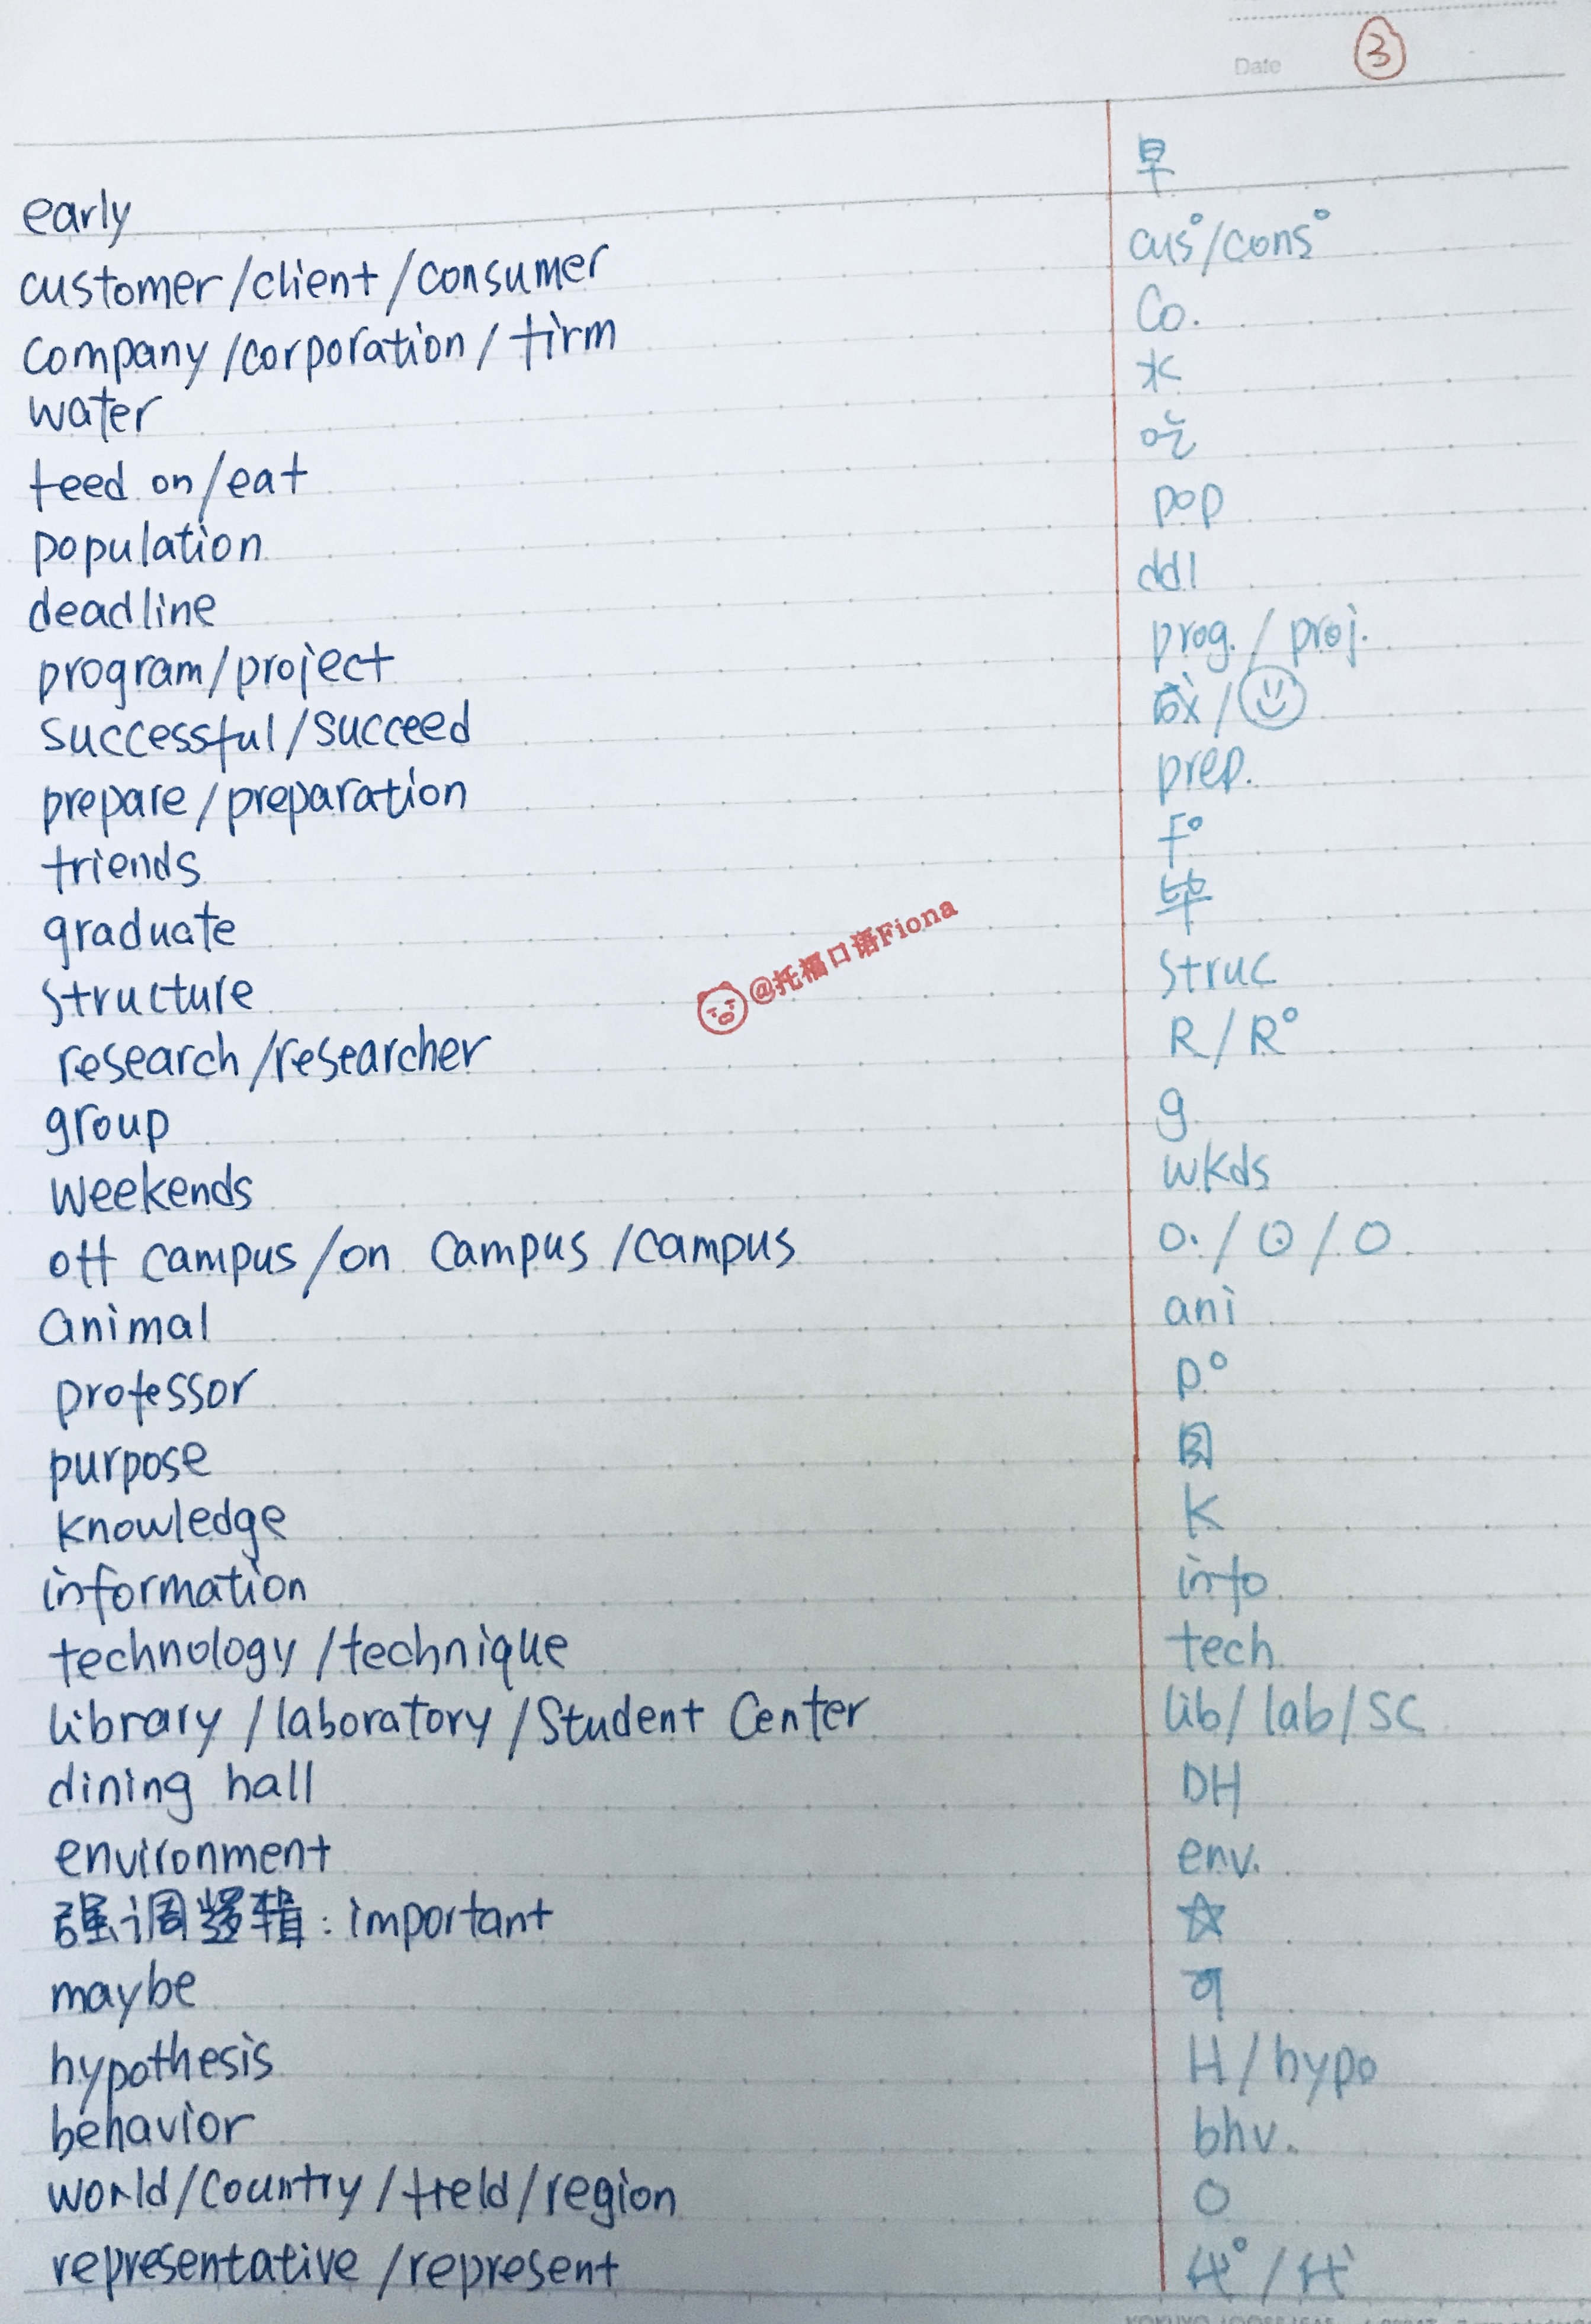 Date ③
early 早
customer/client/consumer cus°/cons°
company/corporation/firm Co.
water 水
feed on/eat 吃
population pop
deadline ddl
program/project prog./proj.
successful/succeed 成/☺
prepare/preparation prep.
friends f°
graduate 毕
structure struc
@托福口语Fiona
research/researcher R/R°
group g
weekends wkds
off campus/on campus/campus O·/⊙/O
animal ani
professor p°
purpose 图
knowledge K
information info
technology/technique tech
library/laboratory/Student Center lib/lab/SC
dining hall DH
environment env.
强调逻辑: important ☆
maybe 可
hypothesis H/hypo
behavior bhv.
world/country/field/region O
representative/represent 代°/代